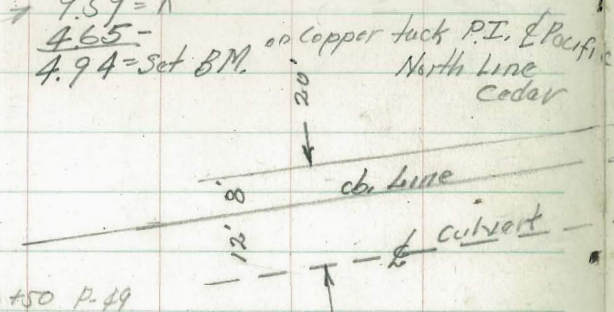 9.59 =
4.65 -
4.94 = Set B.M. on Copper tack P.I. ℄ Pacific
North Line
Cedar
20'
cb. Line
8'
12'
℄ Culvert
+50 P-49